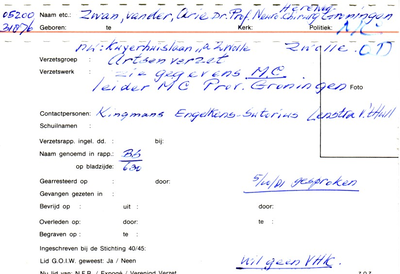 05200 Naam etc.: Zwan, van der, Arie Dr. Prof. Neuro Chirurg Groningen
Hereweg
31876 Geboren: te Kerk: Politiek: N.R.
Zwolle
Verzetsgroep: Artsenverzet
Verzetswerk Zie gegevens M.C.
leider MC Prov. Groningen Foto
Contactpersonen: Kingmans Engelkens-Sutorius Lenstra
Schuilnaam :
Verzetsrapp. ingel. dd. : bij:
Naam genoemd in rapp.:
op bladzijde: 630
Gearresteerd op : door: gesproken
Gevangen gezeten in :
Bevrijd op : uit : door:
Overleden op : door: te :
Begraven op : te :
Ingeschreven bij de Stichting 40/45:
Lid G.O.I.W. geweest: Ja / Neen Wil geen VHK.
Nu lid van: N.F.R. / Expogé / Verenigd Verzet